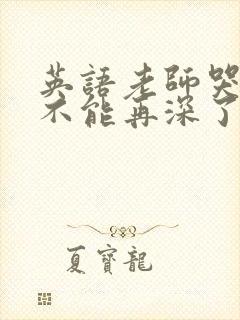 英語老師哭
不能再深了
夏寶龍